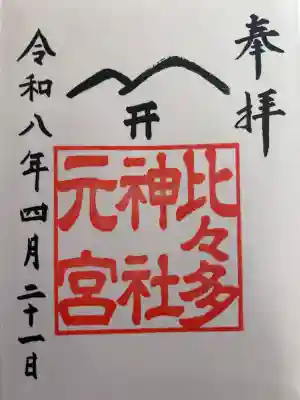 奉拝
开
比々多
神社
元宮
令和八年四月二十一日